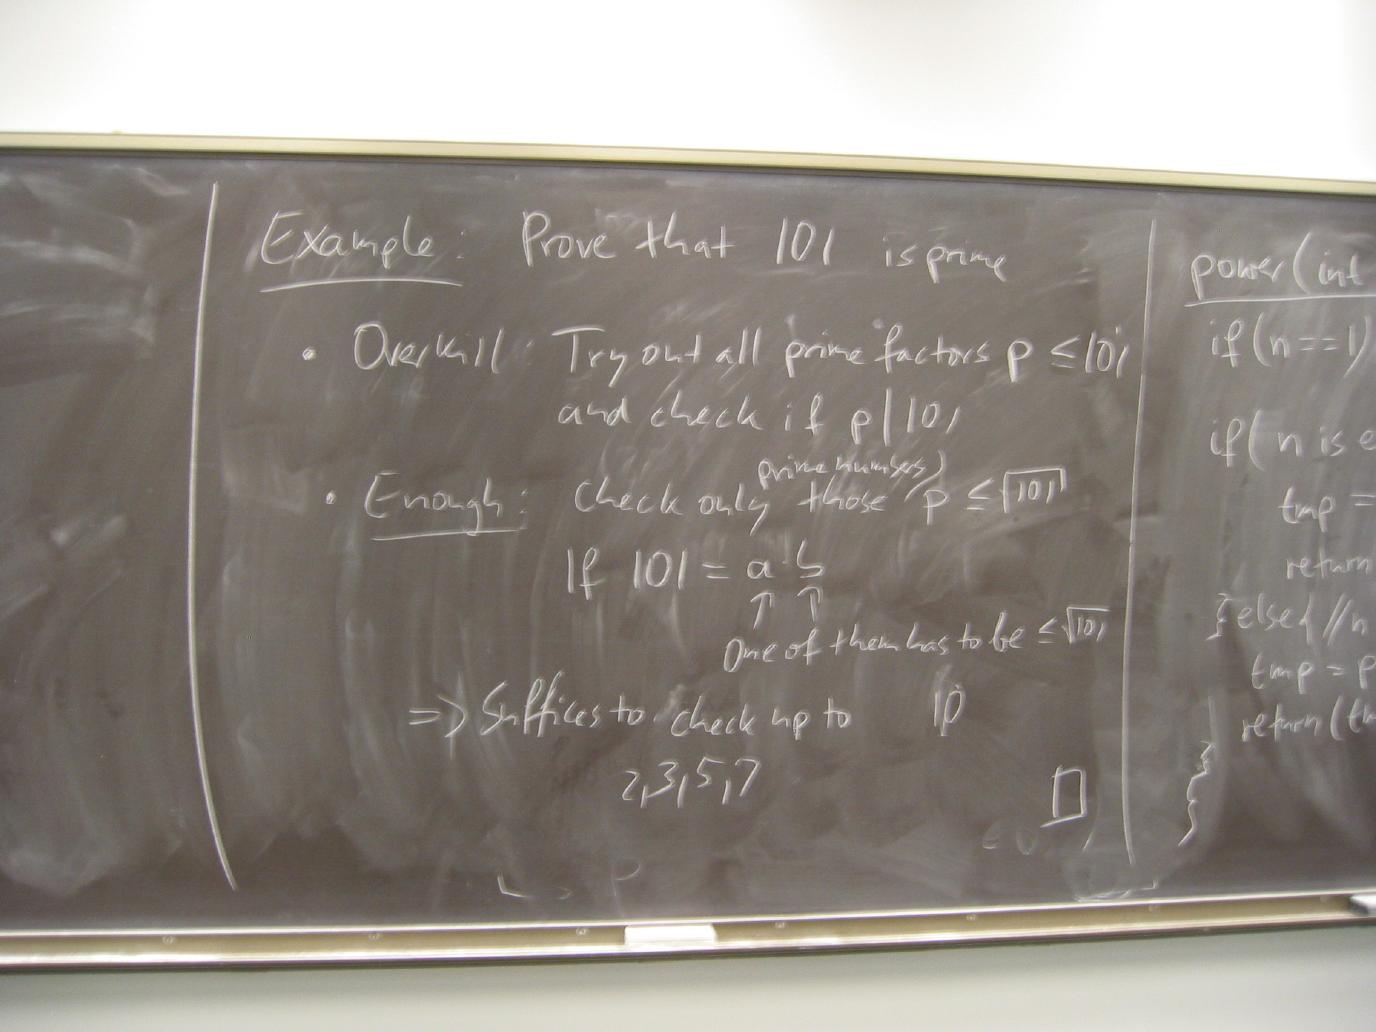 Example: Prove that 101 is prime
• Overkill: Try out all prime factors p ≤ 101
and check if p | 101
prime numbers)
• Enough: Check only those p ≤ √101
If 101 = a · b
↑ ↑
One of them has to be ≤ √101
=> Suffices to check up to 10
2, 3, 5, 7
□
power(int
if(n==1)
if(n is e
tmp =
return
}else{ //n
tmp = p
return(tm
}
}